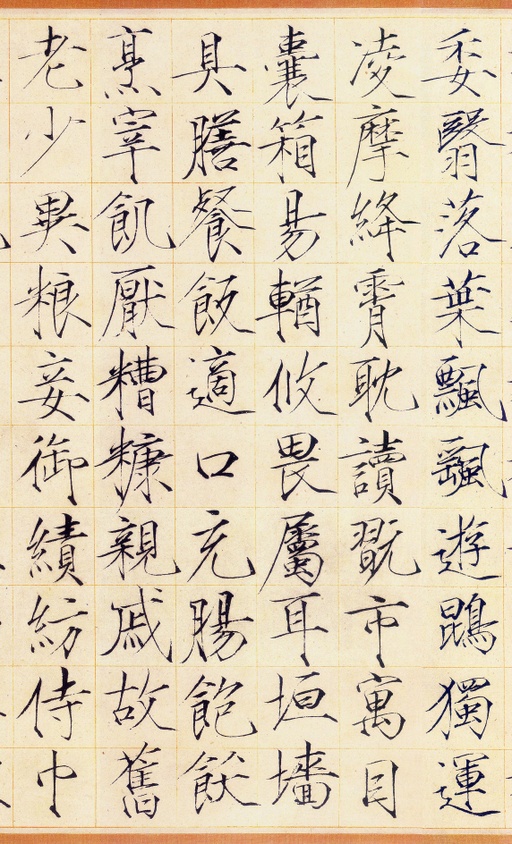 委翳落葉飄颻遊鵾獨運
凌摩絳霄耽讀翫市寓目
囊箱易輶攸畏屬耳垣墻
具膳餐飯適口充腸飽飫
烹宰飢厭糟糠親戚故舊
老少異粮妾御績紡侍巾